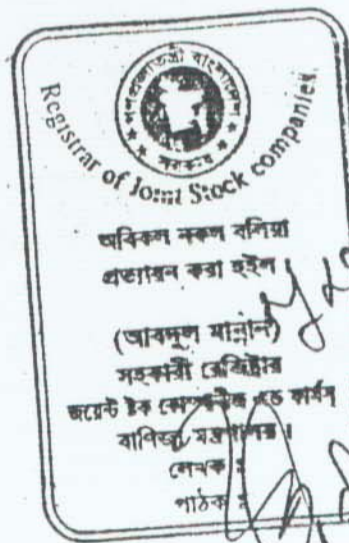 গণপ্রজাতন্ত্রী বাংলাদেশ
সরকার
Registrar of Joint Stock companies.
অবিকল নকল বলিয়া
প্রত্যায়ন করা হইল।
(আবদুল মান্নান)
সহকারী রেজিষ্টার
জয়েন্ট ষ্টক কোম্পানীজ এন্ড ফার্মস
বাণিজ্য মন্ত্রণালয়।
লেখক :
পাঠক :